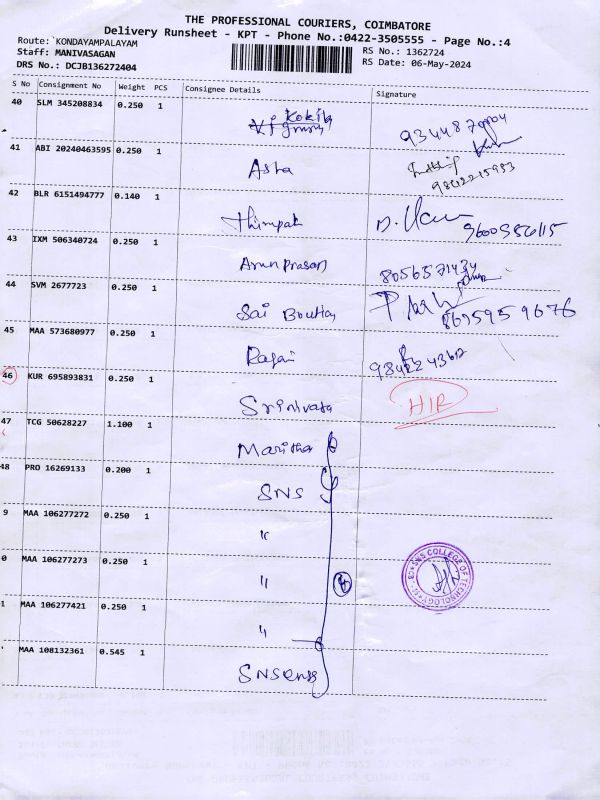 THE PROFESSIONAL COURIERS, COIMBATORE
Delivery Runsheet - KPT - Phone No.:0422-3505555 - Page No.:4
Route:`KONDAYAMPALAYAM
RS No.: 1362724
Staff: MANIVASAGAN
RS Date: 06-May-2024
DRS No.: DCJB136272404
S No Consignment No Weight PCS Consignee Details Signature
40 SLM 345208834 0.250 1
Kokila
41 ABI 20240463595 0.250 1
Asha 9842215953
42 BLR 6151494777 0.140 1
9600956115
43 IXM 506340724 0.250 1
Arun prasad 8056571434
44 SVM 2677723 0.250 1
Sai 8695959676
45 MAA 573680977 0.250 1
Rajan
46 KUR 695893831 0.250 1
Srinivasa
47 TCG 50628227 1.100 1
48 PRO 16269133 0.200 1
SNS
9 MAA 106277272 0.250 1
"
0 MAA 106277273 0.250 1
"
SNS COLLEGE OF TECHNOLOGY
1 MAA 106277421 0.250 1
"
MAA 108132361 0.545 1